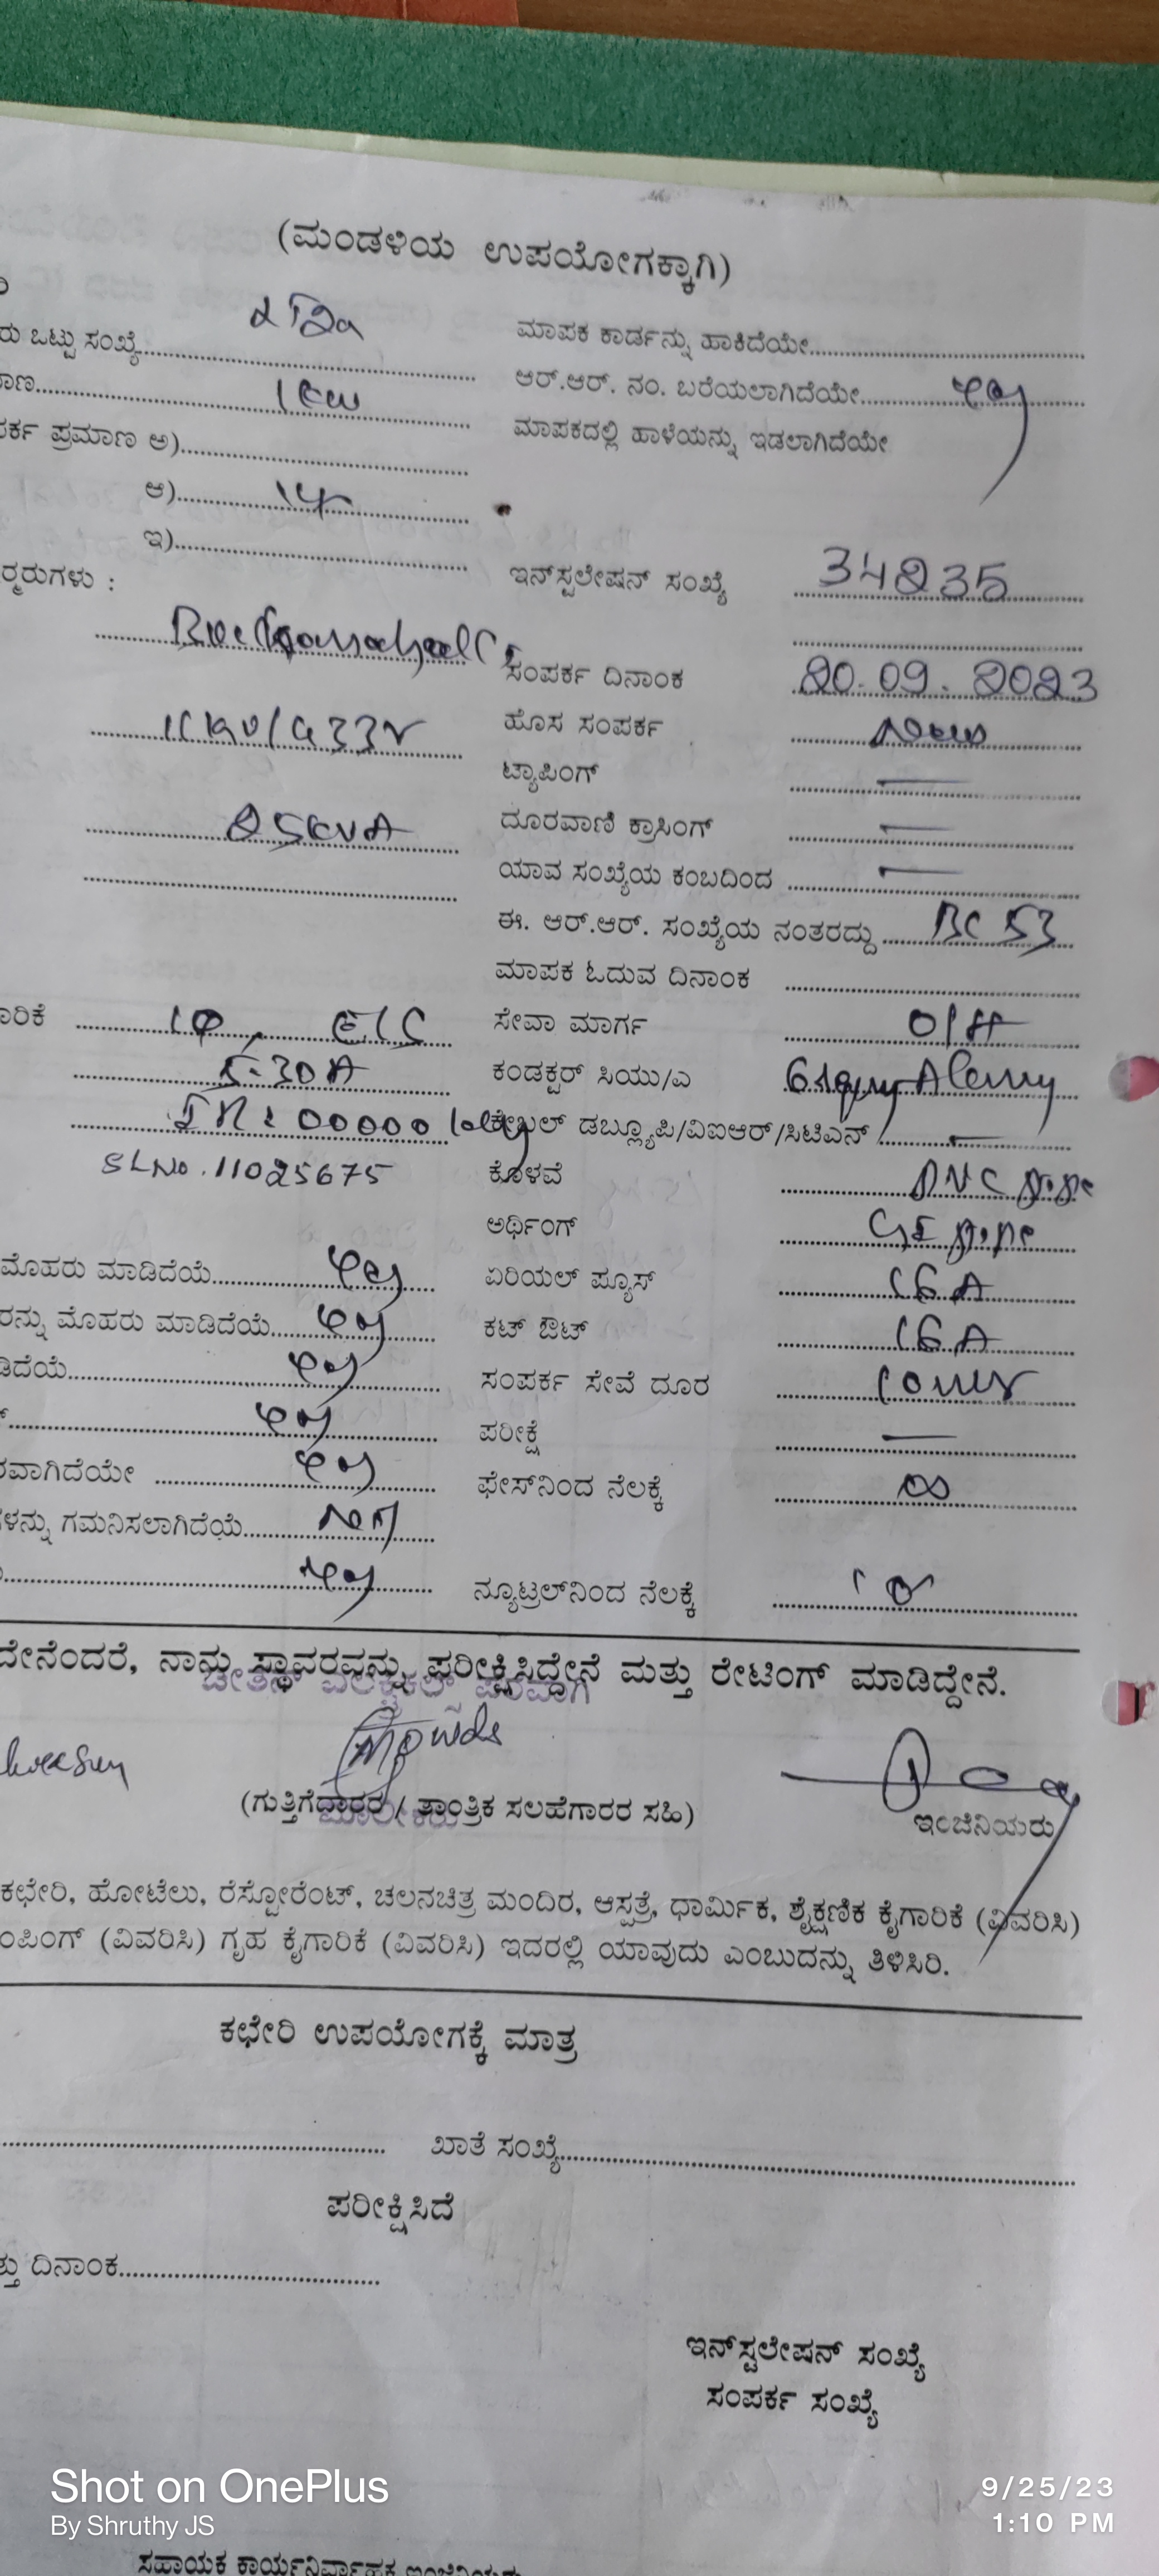 (ಮಂಡಳಿಯ ಉಪಯೋಗಕ್ಕಾಗಿ)
ರು ಒಟ್ಟು ಸಂಖ್ಯೆ
ಮಾಪಕ ಕಾರ್ಡನ್ನು ಹಾಕಿದೆಯೇ
ಾಣ 1 KW
ಆರ್.ಆರ್. ನಂ. ಬರೆಯಲಾಗಿದೆಯೇ yes
ರ್ಕ ಪ್ರಮಾಣ ಅ)
ಮಾಪಕದಲ್ಲಿ ಹಾಳೆಯನ್ನು ಇಡಲಾಗಿದೆಯೇ
ಆ)
ಇ)
ರ್‍ಮರುಗಳು :
ಇನ್‌ಸ್ಟಲೇಷನ್ ಸಂಖ್ಯೆ 34235
ಸಂಪರ್ಕ ದಿನಾಂಕ 20.09.2023
ಹೊಸ ಸಂಪರ್ಕ New
11KV/433V
ಟ್ಯಾಪಿಂಗ್ —
25KVA
ದೂರವಾಣಿ ಕ್ರಾಸಿಂಗ್ —
ಯಾವ ಸಂಖ್ಯೆಯ ಕಂಬದಿಂದ —
ಈ. ಆರ್.ಆರ್. ಸಂಖ್ಯೆಯ ನಂತರದ್ದು BC 53
ಮಾಪಕ ಓದುವ ದಿನಾಂಕ
ಾರಿಕೆ
ಸೇವಾ ಮಾರ್ಗ O/H
5-30A
ಕಂಡಕ್ಟರ್ ಸಿಯು/ಎ
IR: 00000
ಕೇಬಲ್ ಡಬ್ಲ್ಯೂಪಿ/ವಿಐಆರ್/ಸಿಟಿಎನ್ —
SLNo. 11025675
ಕೊಳವೆ PVC pipe
ಅರ್ಥಿಂಗ್ GI pipe
ಮೊಹರು ಮಾಡಿದೆಯೆ yes
ಏರಿಯಲ್ ಫ್ಯೂಸ್ 16 A
ರನ್ನು ಮೊಹರು ಮಾಡಿದೆಯೆ yes
ಕಟ್ ಔಟ್ 16 A
ಡಿದೆಯೆ yes
ಸಂಪರ್ಕ ಸೇವೆ ದೂರ
yes
ಪರೀಕ್ಷೆ —
ರವಾಗಿದೆಯೇ yes
ಫೇಸ್‌ನಿಂದ ನೆಲಕ್ಕೆ ∞
ಗಳನ್ನು ಗಮನಿಸಲಾಗಿದೆಯೆ
yes
ನ್ಯೂಟ್ರಲ್‌ನಿಂದ ನೆಲಕ್ಕೆ
ದೇನೆಂದರೆ, ನಾನು ಸ್ಥಾವರವನ್ನು ಪರೀಕ್ಷಿಸಿದ್ದೇನೆ ಮತ್ತು ರೇಟಿಂಗ್ ಮಾಡಿದ್ದೇನೆ.
(ಗುತ್ತಿಗೆದಾರರ / ತಾಂತ್ರಿಕ ಸಲಹೆಗಾರರ ಸಹಿ)
ಇಂಜಿನಿಯರು
ಕಛೇರಿ, ಹೋಟೆಲು, ರೆಸ್ಟೋರೆಂಟ್, ಚಲನಚಿತ್ರ ಮಂದಿರ, ಆಸ್ಪತ್ರೆ, ಧಾರ್ಮಿಕ, ಶೈಕ್ಷಣಿಕ ಕೈಗಾರಿಕೆ (ವಿವರಿಸಿ)
ಂಪಿಂಗ್ (ವಿವರಿಸಿ) ಗೃಹ ಕೈಗಾರಿಕೆ (ವಿವರಿಸಿ) ಇದರಲ್ಲಿ ಯಾವುದು ಎಂಬುದನ್ನು ತಿಳಿಸಿರಿ.
ಕಛೇರಿ ಉಪಯೋಗಕ್ಕೆ ಮಾತ್ರ
ಖಾತೆ ಸಂಖ್ಯೆ
ಪರೀಕ್ಷಿಸಿದೆ
ತ್ತು ದಿನಾಂಕ
ಇನ್‌ಸ್ಟಲೇಷನ್ ಸಂಖ್ಯೆ
ಸಂಪರ್ಕ ಸಂಖ್ಯೆ
Shot on OnePlus
By Shruthy JS
9/25/23
1:10 PM
ಸಹಾಯಕ ಕಾರ್ಯನಿರ್ವಾಹಕ ಇಂಜಿನಿಯರು